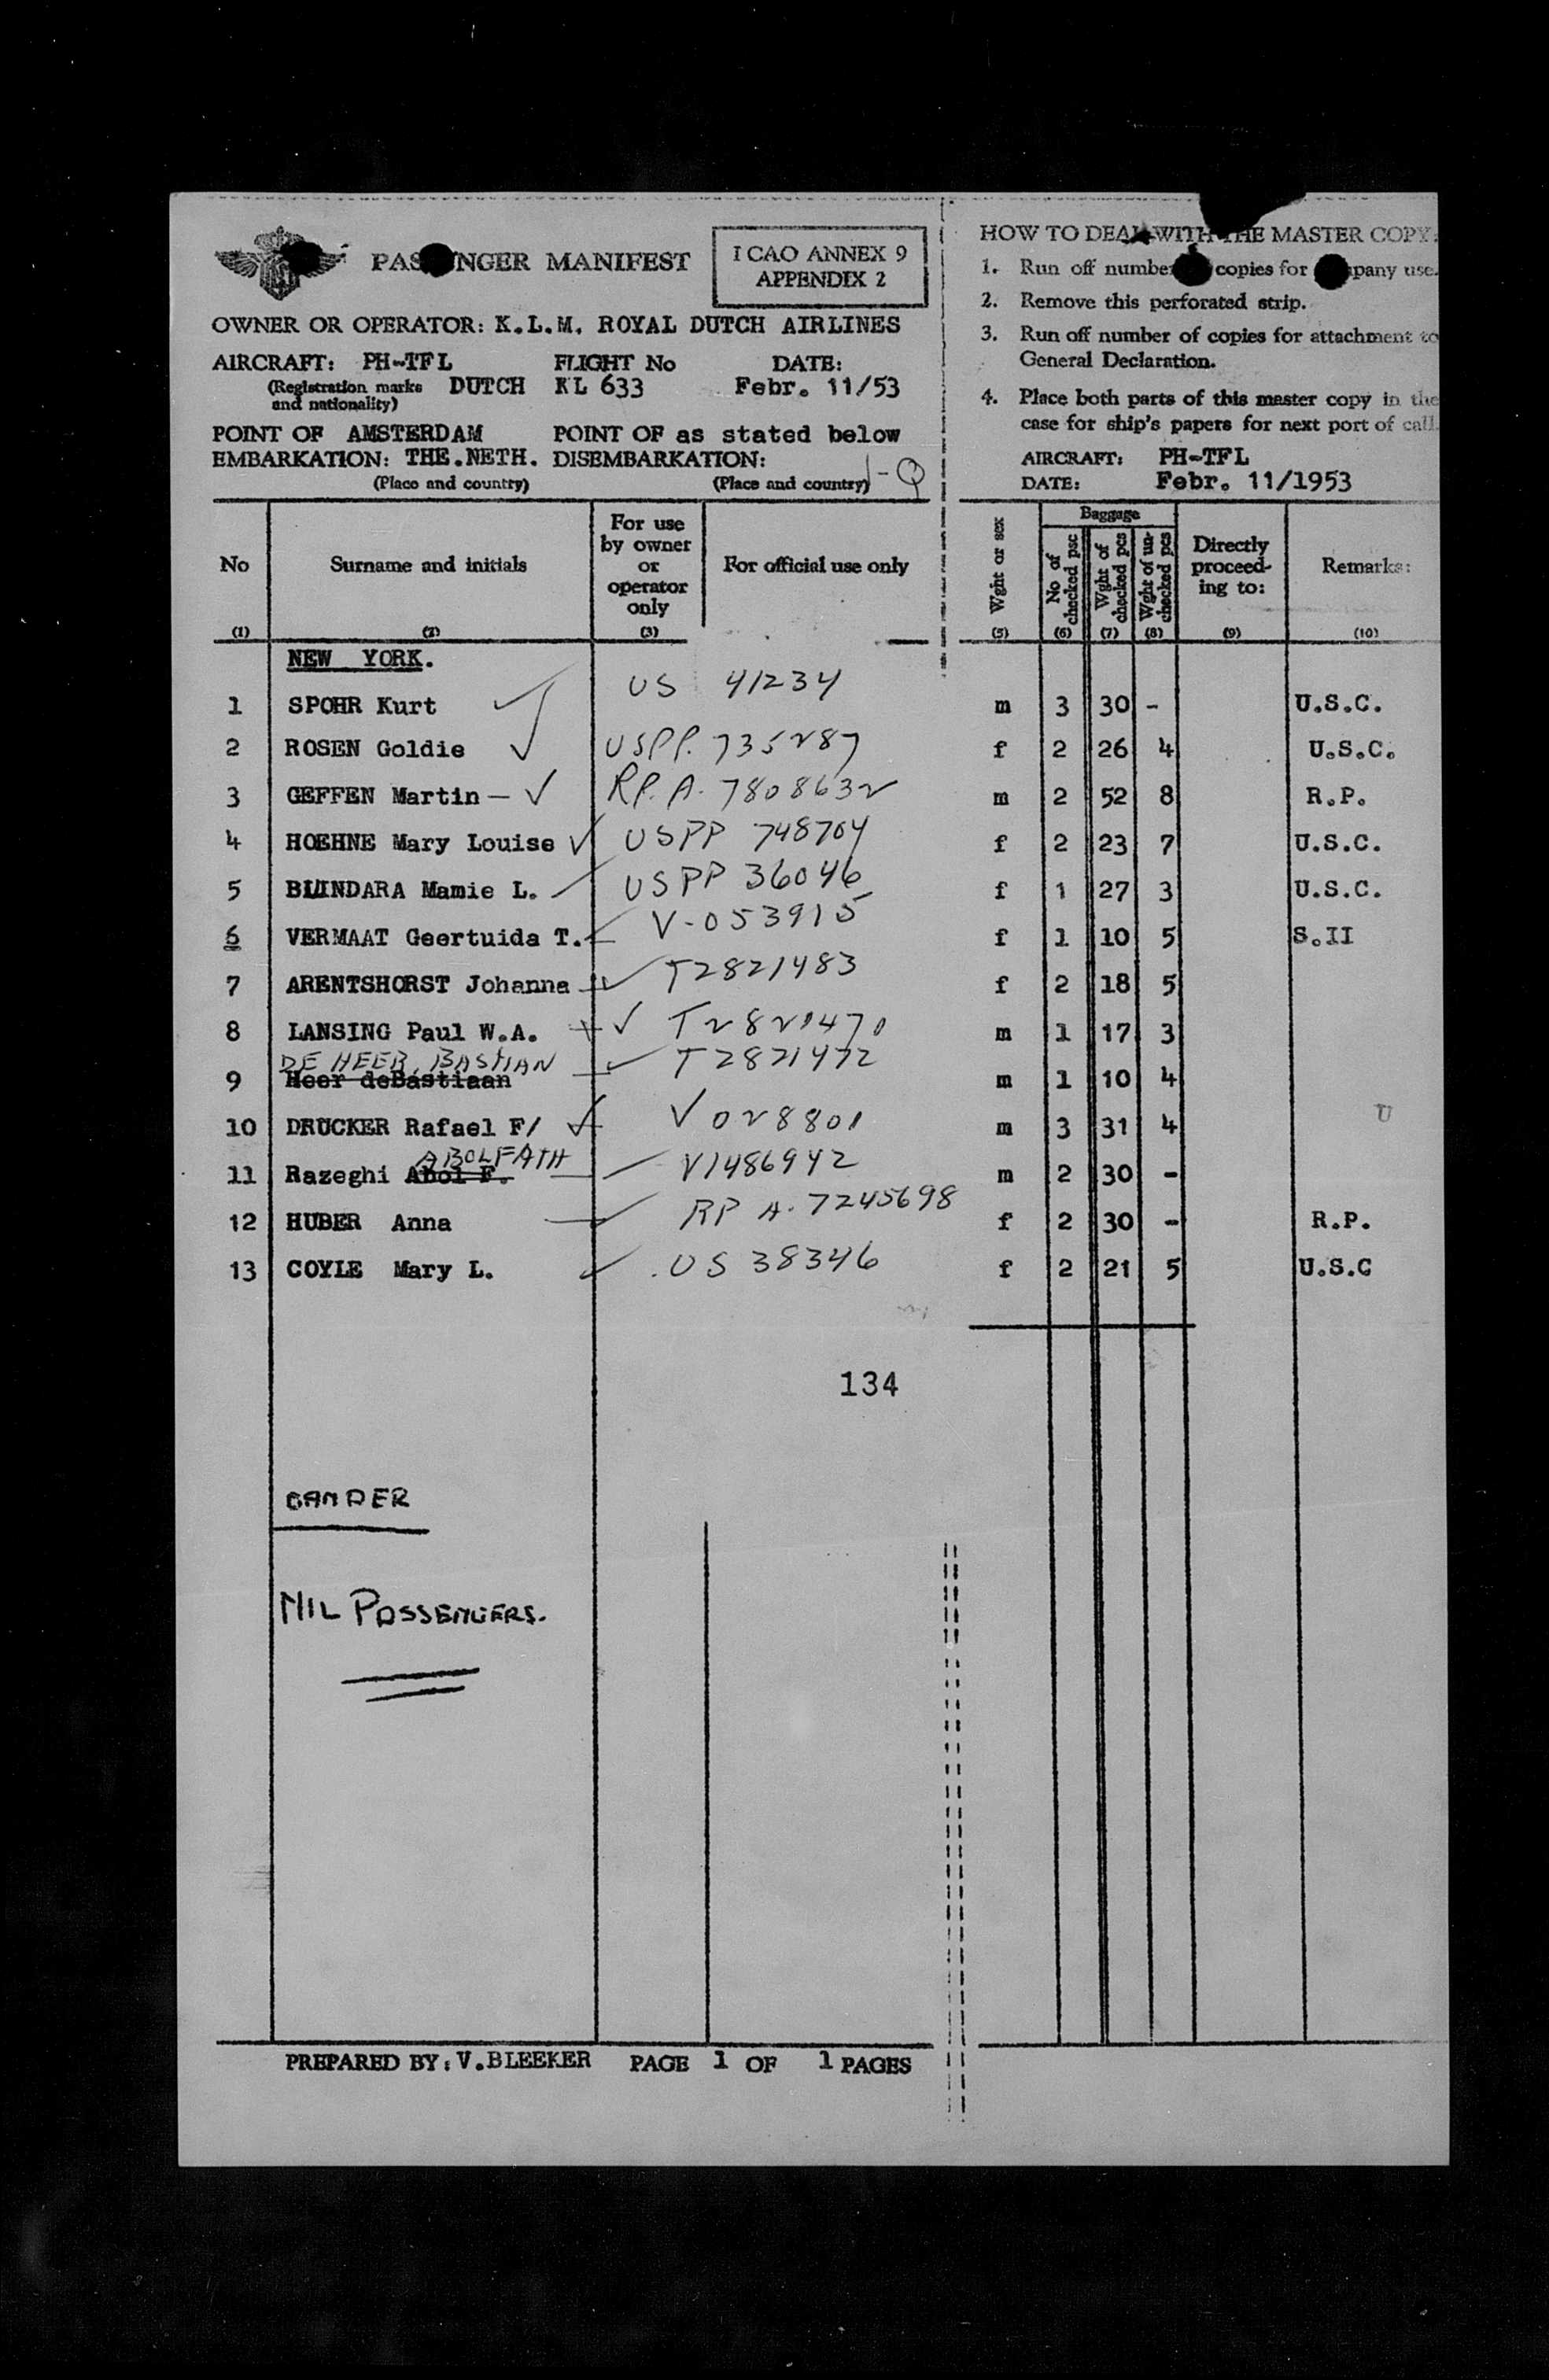 PASSENGER MANIFEST
I CAO ANNEX 9
APPENDIX 2
OWNER OR OPERATOR: K.L.M. ROYAL DUTCH AIRLINES
AIRCRAFT: PH-TFL FLIGHT No DATE:
(Registration marks and nationality) DUTCH KL 633 Febr. 11/53
POINT OF AMSTERDAM POINT OF as stated below
EMBARKATION: THE.NETH. DISEMBARKATION:
(Place and country) (Place and country) 1-Q
HOW TO DEAL WITH THE MASTER COPY:
1. Run off number copies for company use.
2. Remove this perforated strip.
3. Run off number of copies for attachment to
General Declaration.
4. Place both parts of this master copy in the
case for ship's papers for next port of call.
AIRCRAFT: PH-TFL
DATE: Febr. 11/1953
No Surname and initials For use by owner or operator only For official use only Wght or sex Baggage No of checked psc Wght of checked pcs Wght of un-checked pcs Directly proceed-ing to: Remarks:
(1) (2) (3) (5) (6) (7) (8) (9) (10)
NEW YORK.
1 SPOHR Kurt US 41234 m 3 30 - U.S.C.
2 ROSEN Goldie USPP. 735287 f 2 26 4 U.S.C.
3 GEFFEN Martin — RP. A. 7808632 m 2 52 8 R.P.
4 HOEHNE Mary Louise USPP 748704 f 2 23 7 U.S.C.
5 BLUNDARA Mamie L. USPP 36046 f 1 27 3 U.S.C.
6 VERMAAT Geertuida T. V-053915 f 1 10 5 S.II
7 ARENTSHORST Johanna T2821483 f 2 18 5
8 LANSING Paul W.A. T2821470 m 1 17 3
DE HEER, BASTIAN T2821472
9 Heer deBastiaan m 1 10 4
10 DRUCKER Rafael F/ V028801 m 3 31 4
ABOLFATH
11 Razeghi Abol F. V1486942 m 2 30 -
12 HUBER Anna RP A. 7245698 f 2 30 - R.P.
13 COYLE Mary L. US 38346 f 2 21 5 U.S.C
134
GANDER
NIL PASSENGERS.
PREPARED BY: V.BLEEKER PAGE 1 OF 1 PAGES